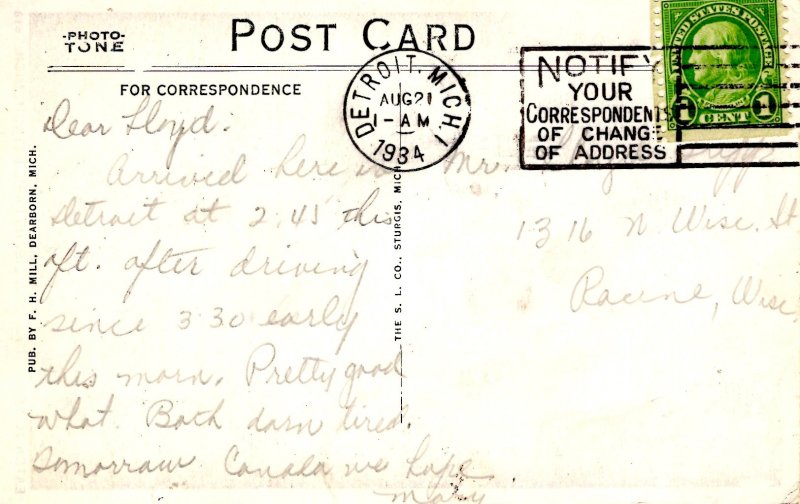 -PHOTO-
TONE
POST CARD
FOR CORRESPONDENCE
PUB. BY F. H. MILL, DEARBORN, MICH.
THE S. L. CO., STURGIS, MICH
DETROIT, MICH. 1
AUG 21
1-AM
1934
NOTIFY
YOUR
CORRESPONDENTS
OF CHANGE
OF ADDRESS
UNITED STATES POSTAGE
1 CENT 1
Dear Lloyd:
Arrived here in
Detroit at 2.45 this
aft. after driving
since 3 30 early
this morn. Pretty good
what. Both darn tired.
Tomorrow Canada we hope
Mary
Mr.
1316 N. Wisc. St
Racine, Wisc.